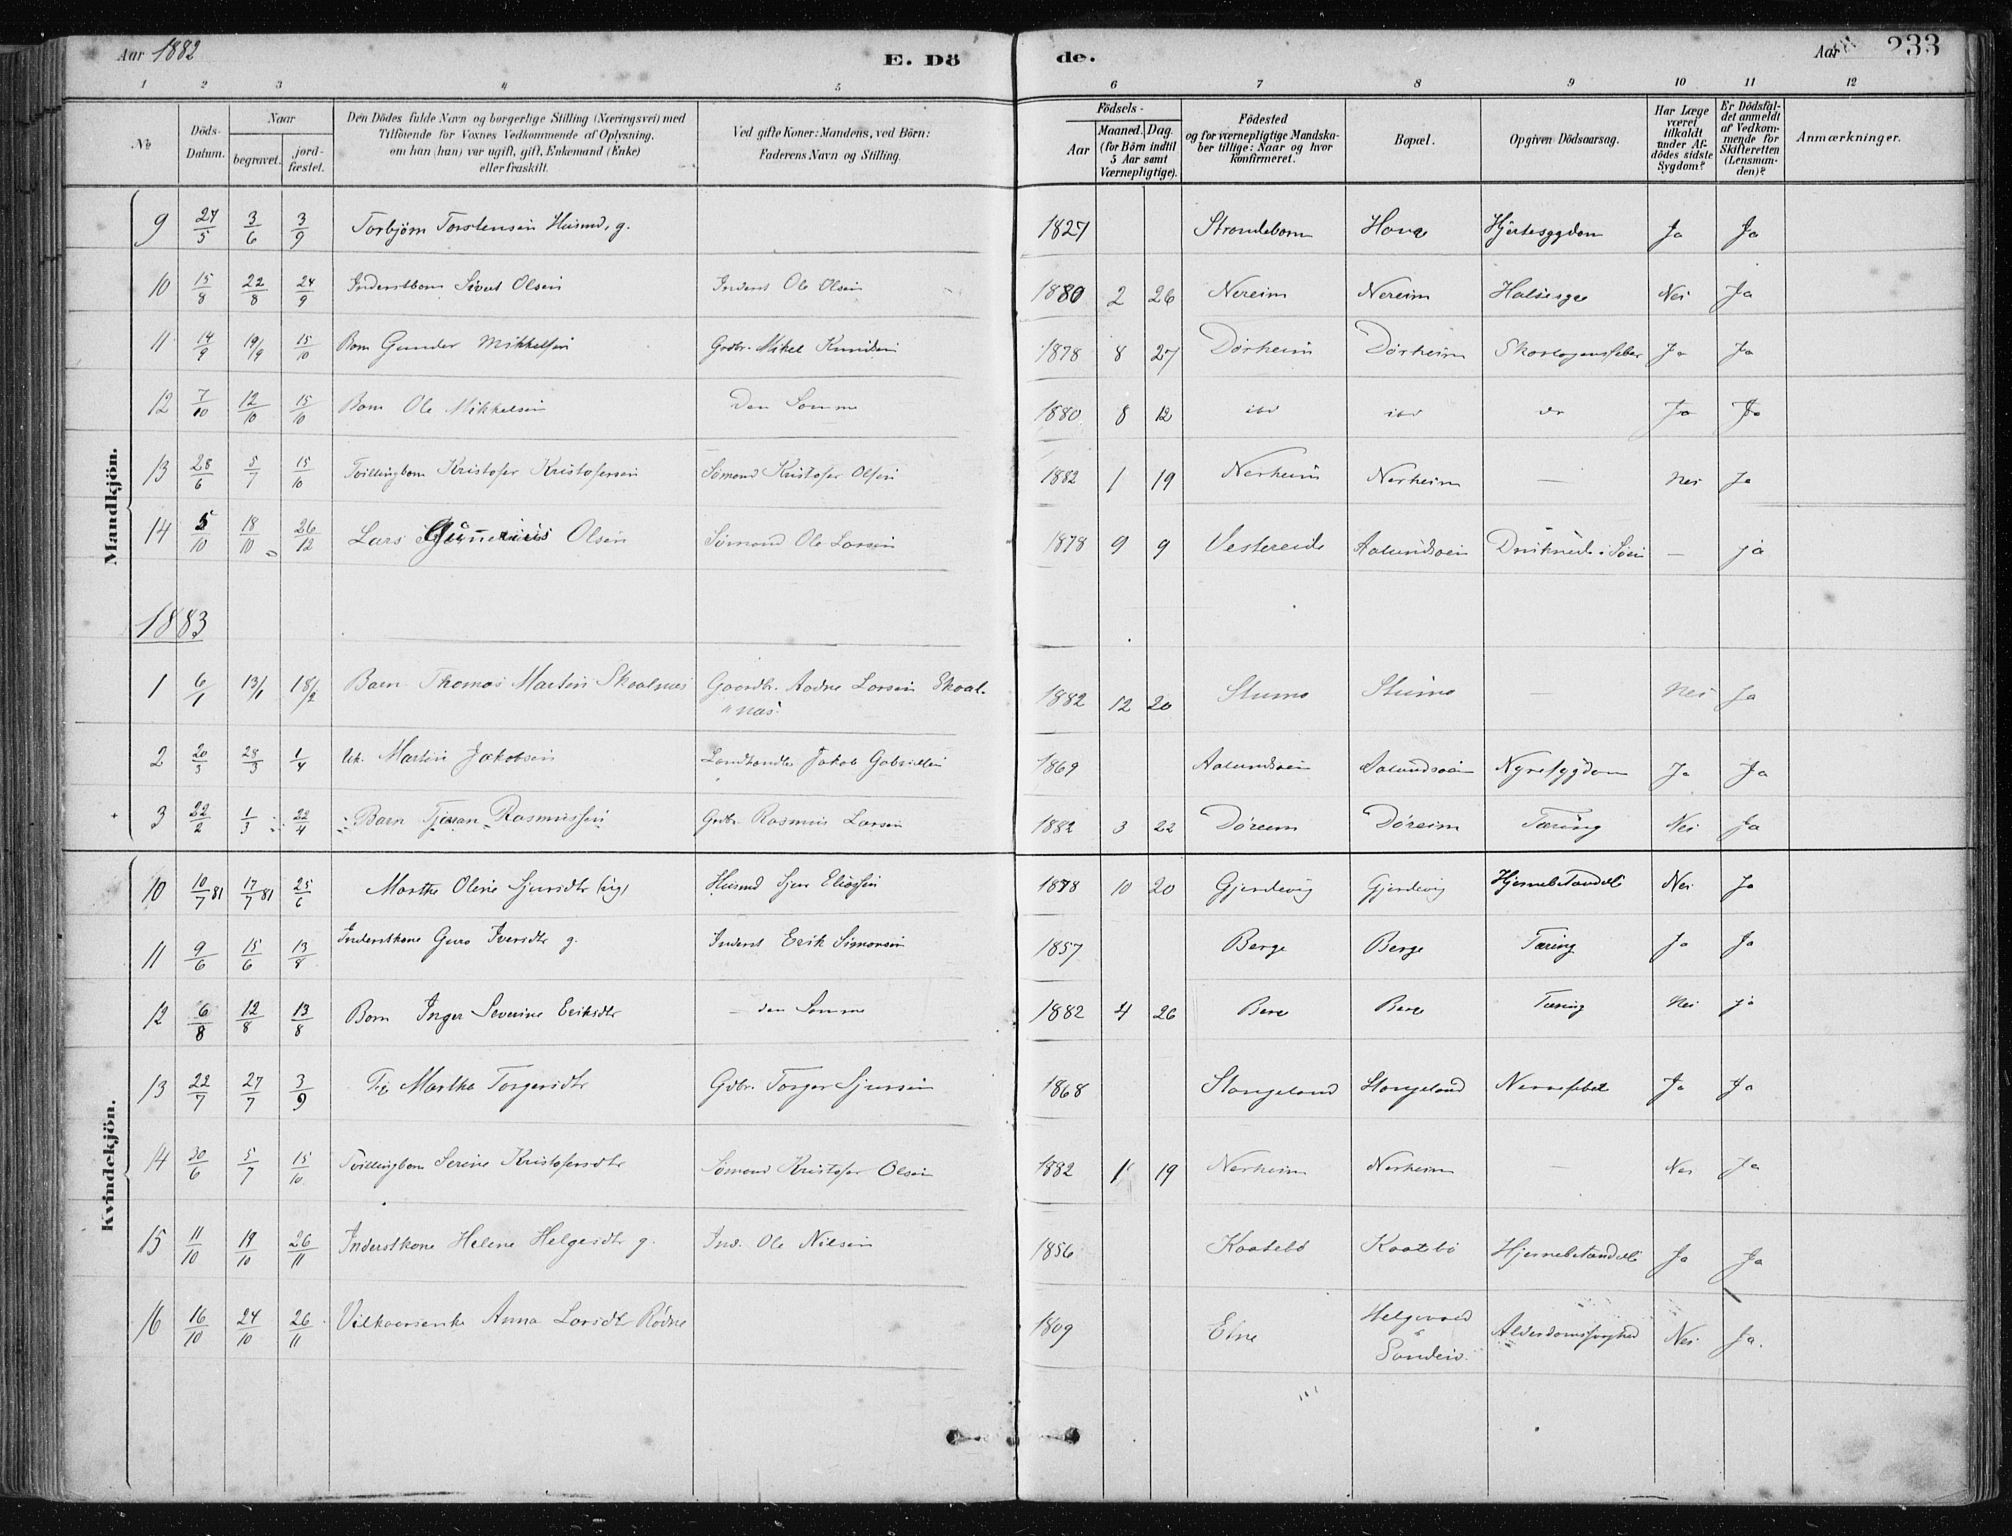 Aar 1882
E. Dö
de.
Aar
233
1 2 3 4 5 6 7 8 9 10 11 12
№
Döds-Datum.
Naar
begravet.
jord-fæstet.
Den Dödes fulde Navn og borgerlige Stilling (Næringsvei) med
Tilföiende for Voxnes Vedkommende af Oplysning,
om han (hun) var ugift, gift, Enkemand (Enke)
eller fraskilt.
Ved gifte Koner: Mandens, ved Börn:
Faderens Navn og Stilling.
Födsels-
Aar
Maaned. Dag.
(for Börn indtil
5 Aar samt
Værnepligtige).
Födested
og for værnepligtige Mandska-
ber tillige: Naar og hvor
konfirmeret.
Bopæl.
Opgiven Dödsaarsag.
Har Læge
været
tilkaldt
under Af-
dödes sidste
Sygdom?
Er Dödsfal-
det anmeldt
af Vedkom-
mende for
Skifteretten
(Lensman-
den)?
Anmærkninger.
Mandkjön.
9 27/5 3/6 3/9 Torbjörn Torstensen Husmd, g. 1827 Strondebarm Hauge Hjertesygdom Ja Ja
10 15/8 22/8 24/9 Inderstbarn Sivert Olsen Inderst Ole Olsen 1880 2 26 Nereim Nereim Halssyge Nei Ja
11 14/9 19/9 15/10 Barn Gunder Mikkelsen Grdbr. Mikel Knudsen 1878 8 27 Dörheim Dörheim Skarlagensfeber Ja Ja
12 7/10 12/10 15/10 Barn Ole Mikkelsen Den Samme 1880 8 12 ibd ibd do Ja Ja
13 28/6 5/7 15/10 Tvillingbarn Kristofer Kristofersen Sömand Kristofer Olsen 1882 1 19 Nerheim Nerheim — Nei Ja
14 5/10 18/10 26/12 Lars Gunnerius Olsen Sömand Ole Larsen 1878 9 9 Vestereide Aalundsøen Druknede i Søen — ja
1883
1 6/1 13/1 18/2 Barn Thomas Martin Skaalnæs Gaardbr. Aadne Larsen Skaal-
"næs. 1882 12 20 Stumo Stumo — Nei Ja
2 20/3 28/3 1/4 Uk. Martin Jakobsen Landhandler Jakob Gabrielsen 1869 Aalundsøen Aalundsøen Nyresygdom Ja Ja
3 22/2 1/3 22/4 Barn Tjeran Rasmussen Grdbr. Rasmus Larsen 1882 3 22 Döreim Döreim Tæring Nei Ja
Kvindekjön.
10 10/7 81 17/7 81 25/6 Marthe Oline Sjursdtr (ug) Husmd Sjur Eliassen 1878 10 20 Gjerdevig Gjerdevig Hjernebetændelse Nei Ja
11 9/6 15/6 13/8 Inderstkone Guro Iversdtr g. Inderst Erik Simonsen 1857 Berge Berge Tæring Ja Ja
12 6/8 12/8 13/8 Barn Inger Severine Eriksdtr — den Samme 1882 4 26 Berge Berge Tæring Nei ja
13 22/7 27/7 3/9 Pig Martha Torgersdtr Gdbr. Torger Sjursen 1868 Stangeland Stangeland Nervefeber Ja Ja
14 30/6 5/7 15/10 Tvillingbarn Serine Kristofersdtr Sömand Kristofer Olsen 1882 1 19 Nerheim Nerheim — Nei Ja
15 11/10 19/10 26/11 Inderstkone Helene Helgesdtr g. Ind. Ole Nilsen 1856 Kaatebö Kaatebö Hjernebetændelse Ja Ja
16 16/10 24/10 26/11 Vilkaarsenke Anna Larsdtr Rödne 1809 Etne Helgevold
i Sandeid. Alderdomssvaghed Nei Ja.